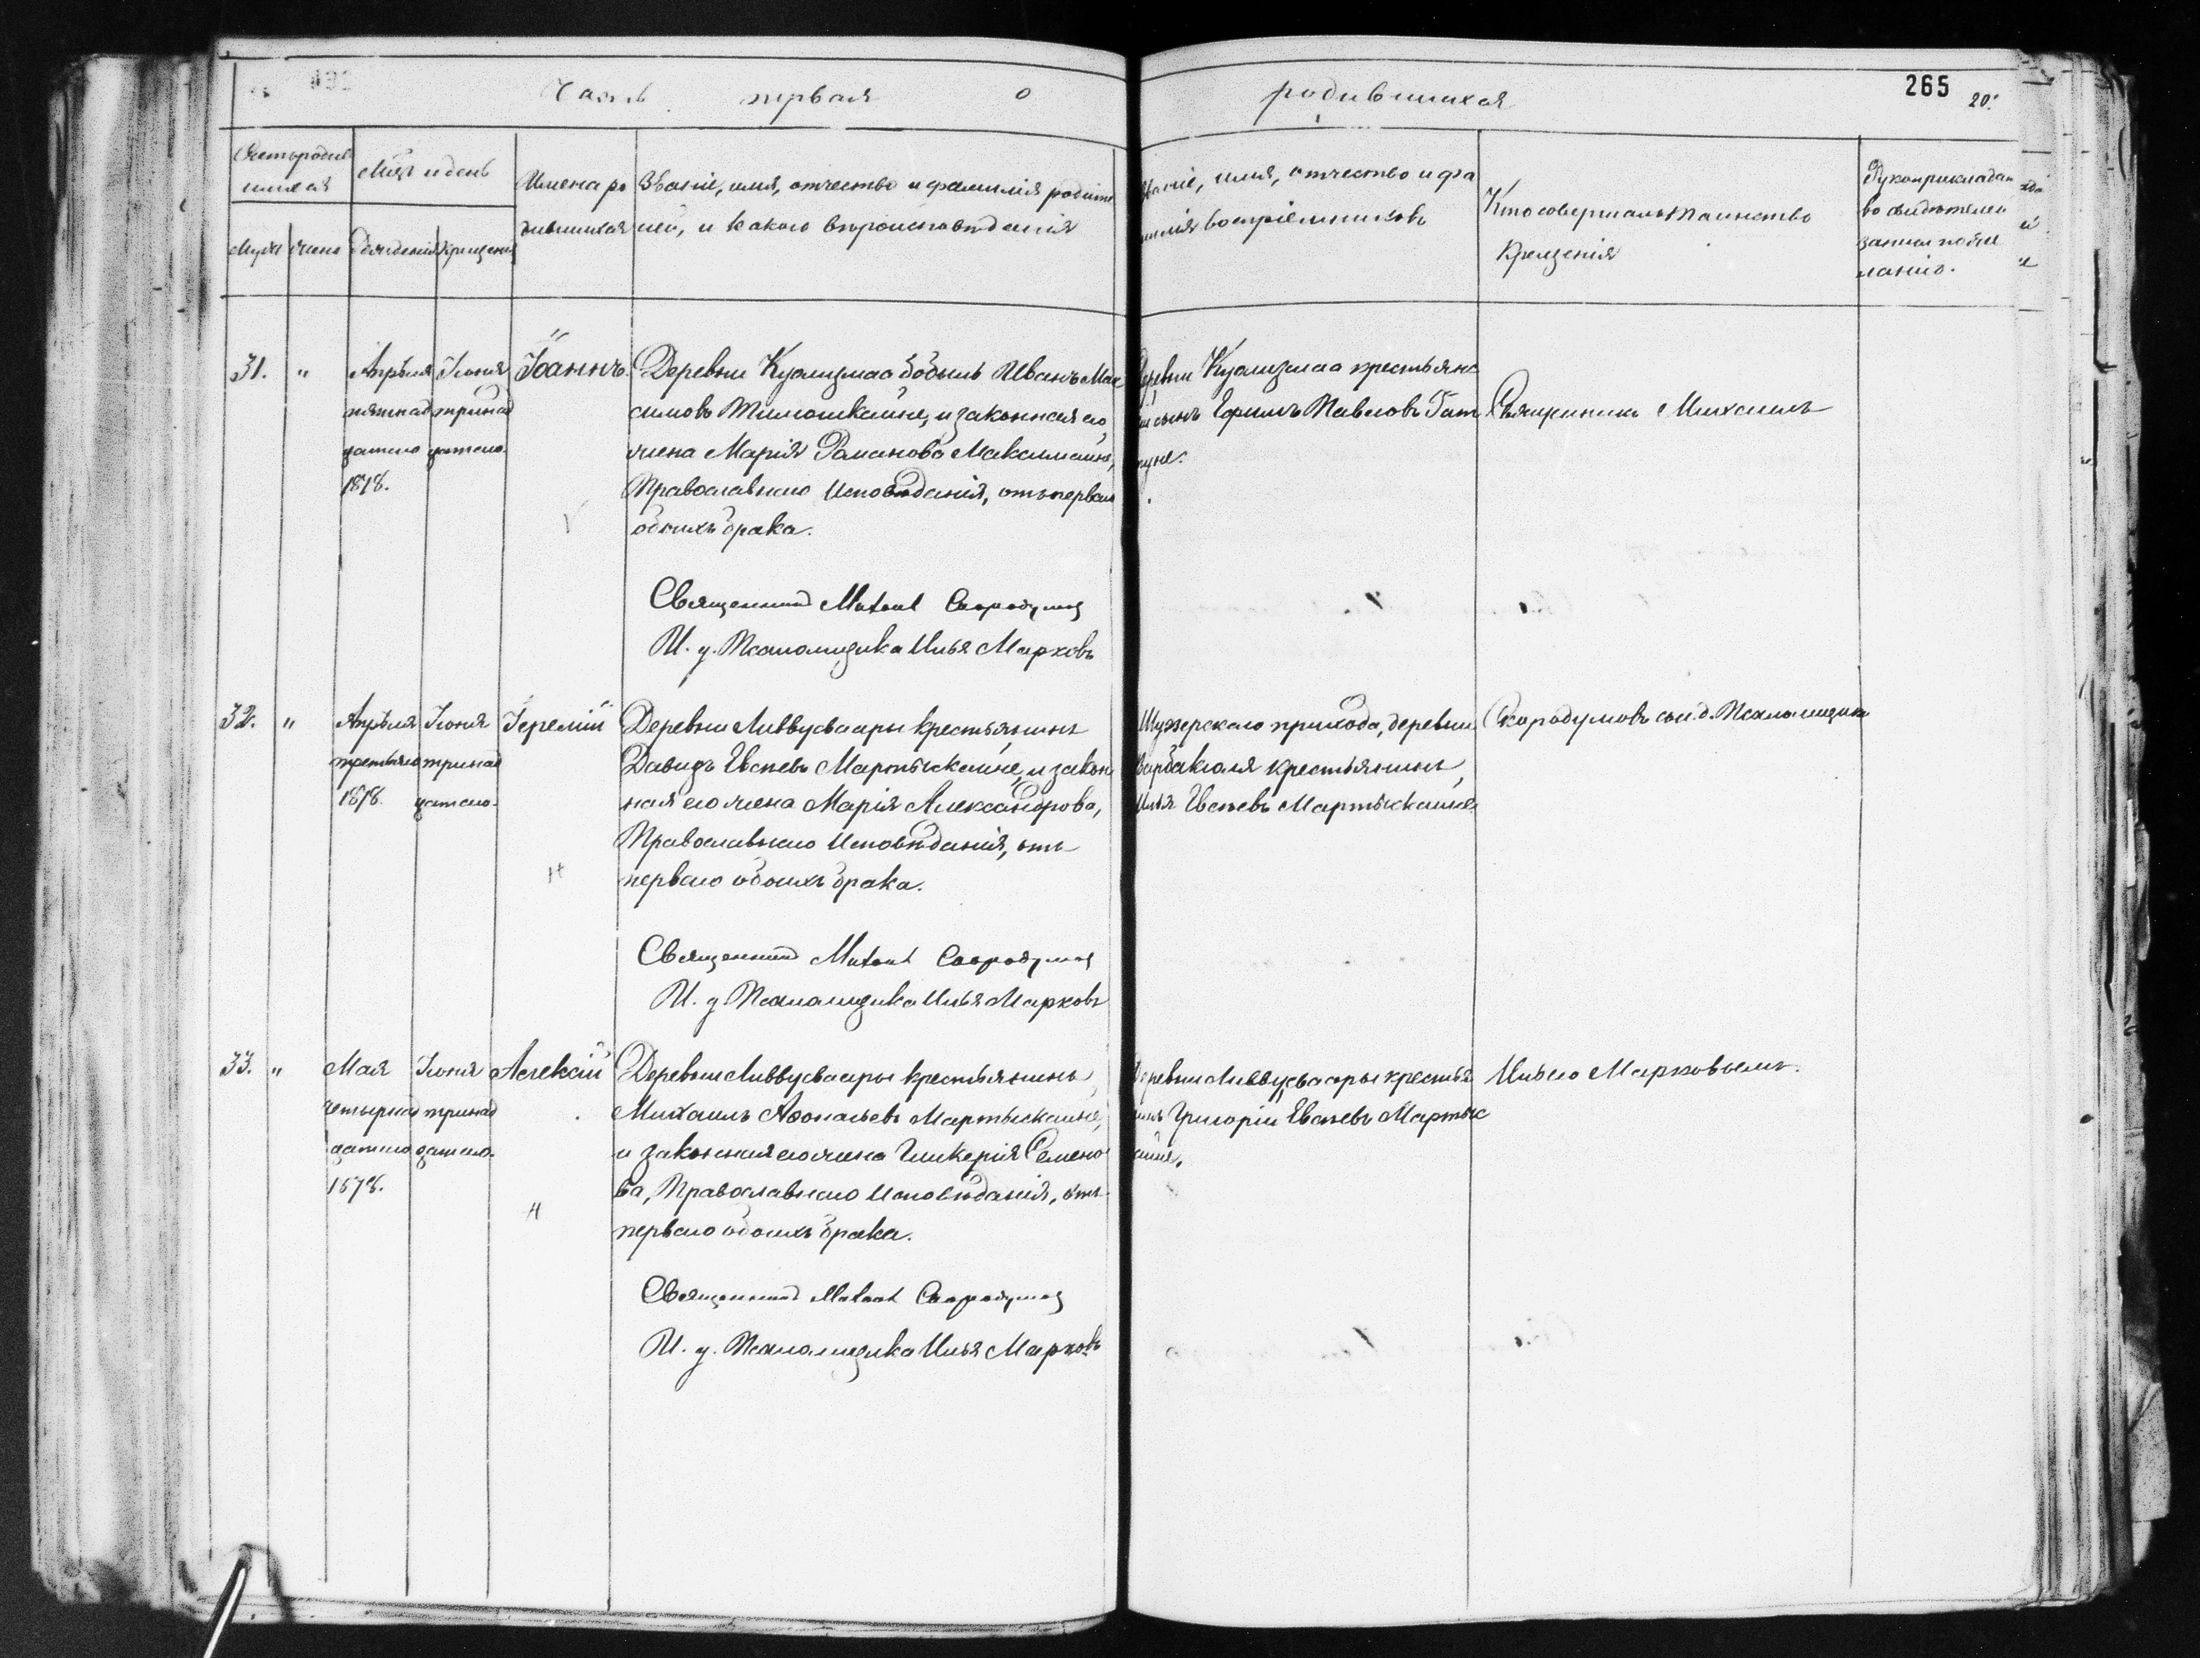 Часть первая о родившихся
265
20.
Счетъ родив
шихся
Мѣс. и день
Имена ро
дившихся
Званіе, имя, отчество и фамилія родите
лей, и какого вѣроисповѣданія
Званіе, имя, отчество и фа
милія воспріемниковъ
Кто совершалъ таинство
крещенія
Рукоприкладст
во свидѣтелей
записи по же
ланію.
муж.
жен.
рожденія
крещенія
31.
"
Апрѣля
пятнад
цатаго
1878.
Іюня
тринад
цатаго.
Іоаннъ.
Деревни Куолизмаа бобыль Иванъ Мак
симовъ Тимошкайне, и законная его
жена Марія Романова Максимайне,
Православнаго Исповѣданія, отъ перваго
обоихъ брака.
Священникъ Михаилъ Скородумов
И. д. Псаломщика Илья Марковъ
Деревни Куолизмаа крестьянс
сынъ Ефимъ Павловъ Гат
Священникъ Михаилъ
32.
"
Апрѣля
третьяго
1878.
Іюня
тринад
цатаго.
Іеремій
Деревни Ливвусваары крестьянинъ
Давидъ Евсѣевъ Мартыскайне, и закон
ная его жена Марія Александрова,
Православнаго Исповѣданія, отъ
перваго обоихъ брака.
Н
Священникъ Михаилъ Скородумов
И. д. Псаломщика Илья Марковъ
Шуезерскаго прихода, деревни
крестьянинъ
Илья Евсѣевъ Мартыскайне.
Скородумовъ съ и. д. Псаломщика
33.
"
Мая
четырнад
цатаго
1878.
Іюня
тринад
цатаго.
Алексій
Деревни Ливвусваары крестьянинъ
Михаилъ Аѳонасьевъ Мартыскайне,
и законная его жена Гликерія Семено
ва, Православнаго Исповѣданія, отъ
перваго обоихъ брака.
Н
Священникъ Михаилъ Скородумов
И. д. Псаломщика Илья Марковъ
Деревни Ливвусваары крестья
нинъ Григорій Евсѣевъ Мартыс
кайне.
Ильею Марковымъ.